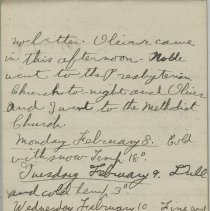 no better. Oliver came
in this afternoon. Noble
went to the Presbyterian
Church to night and Oliver
and I went to the Methodist
Church.
Monday February 8. Cold
with snow Temp 18°.
Tuesday February 9. Dull
and cold temp. 3°
Wednesday February 10. Fine and